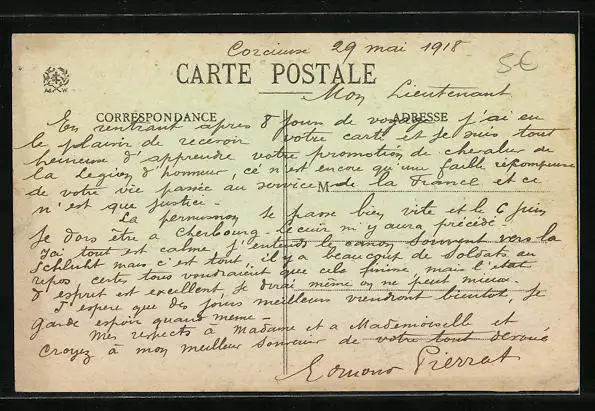 Corcieux 29 mai 1918
5€
CARTE POSTALE
Mon Lieutenant
CORRESPONDANCE
ADRESSE
En rentrant après 8 jours de voyage j'ai eu
le plaisir de recevoir votre carte et je suis tout
heureuse d'apprendre votre promotion de chevalier de
la Legion d'honneur, ce n'est encore qu'une faible récompense
de votre vie passée au service de la France et ce
M
n'est que justice -
La permission se passe bien vite et le 6 juin
Je dois être à Cherbourg - m'y aura précédé -
Ici tout est calme j'entends le canon souvent vers la
Schlucht mais c'est tout, il y a beaucoup de soldats au
repos certes tous voudraient que cela finisse mais l'état
d'esprit est excellent je dirai même on ne peut mieux -
J'espere que des jours meilleurs viendront bientot, je
garde espoir quand meme -
Mes respects à Madame et a Mademoiselle et
croyez à mon meilleur souvenir de votre tout dévoué
Edmond Pierrat